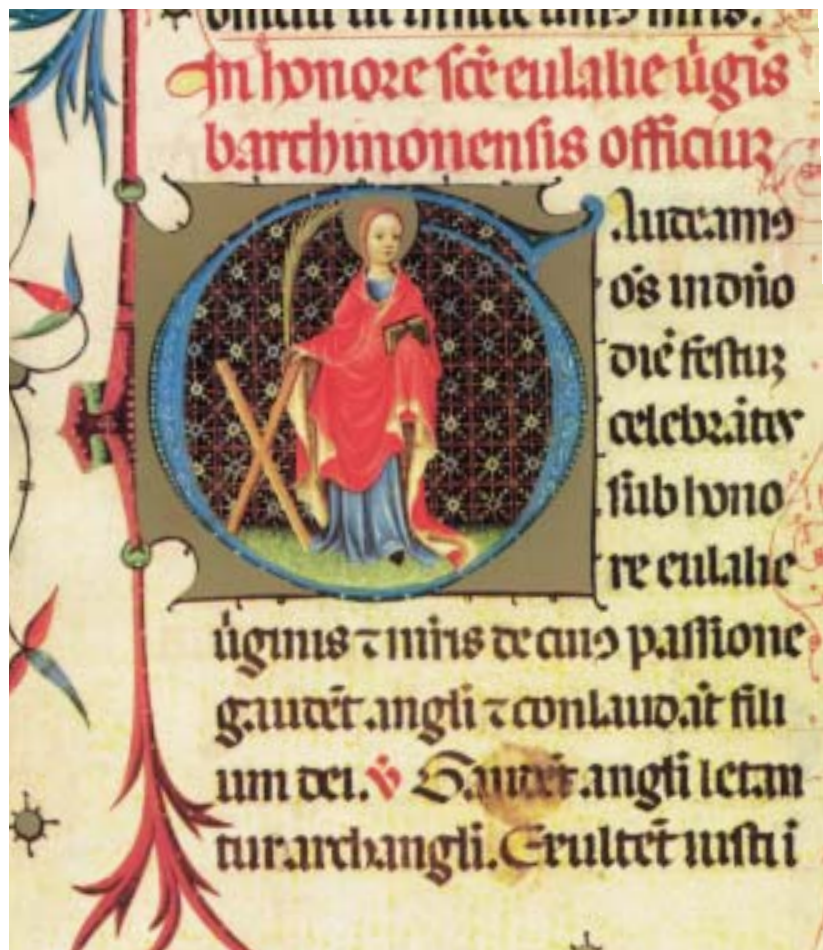 In honore scẽ eulalie ũgis
barchinonensis officiuz
Gaudeamꝰ
õs in dño
diẽ festuz
celebrãtes
sub hono
re eulalie
ũginis ⁊ mĩris de cuiꝰ passione
gaudẽt angli ⁊ conlaudãt fili
um dei. ꝟ Gaudẽt angli letan
tur archangli. Exultẽt iusti ĩ